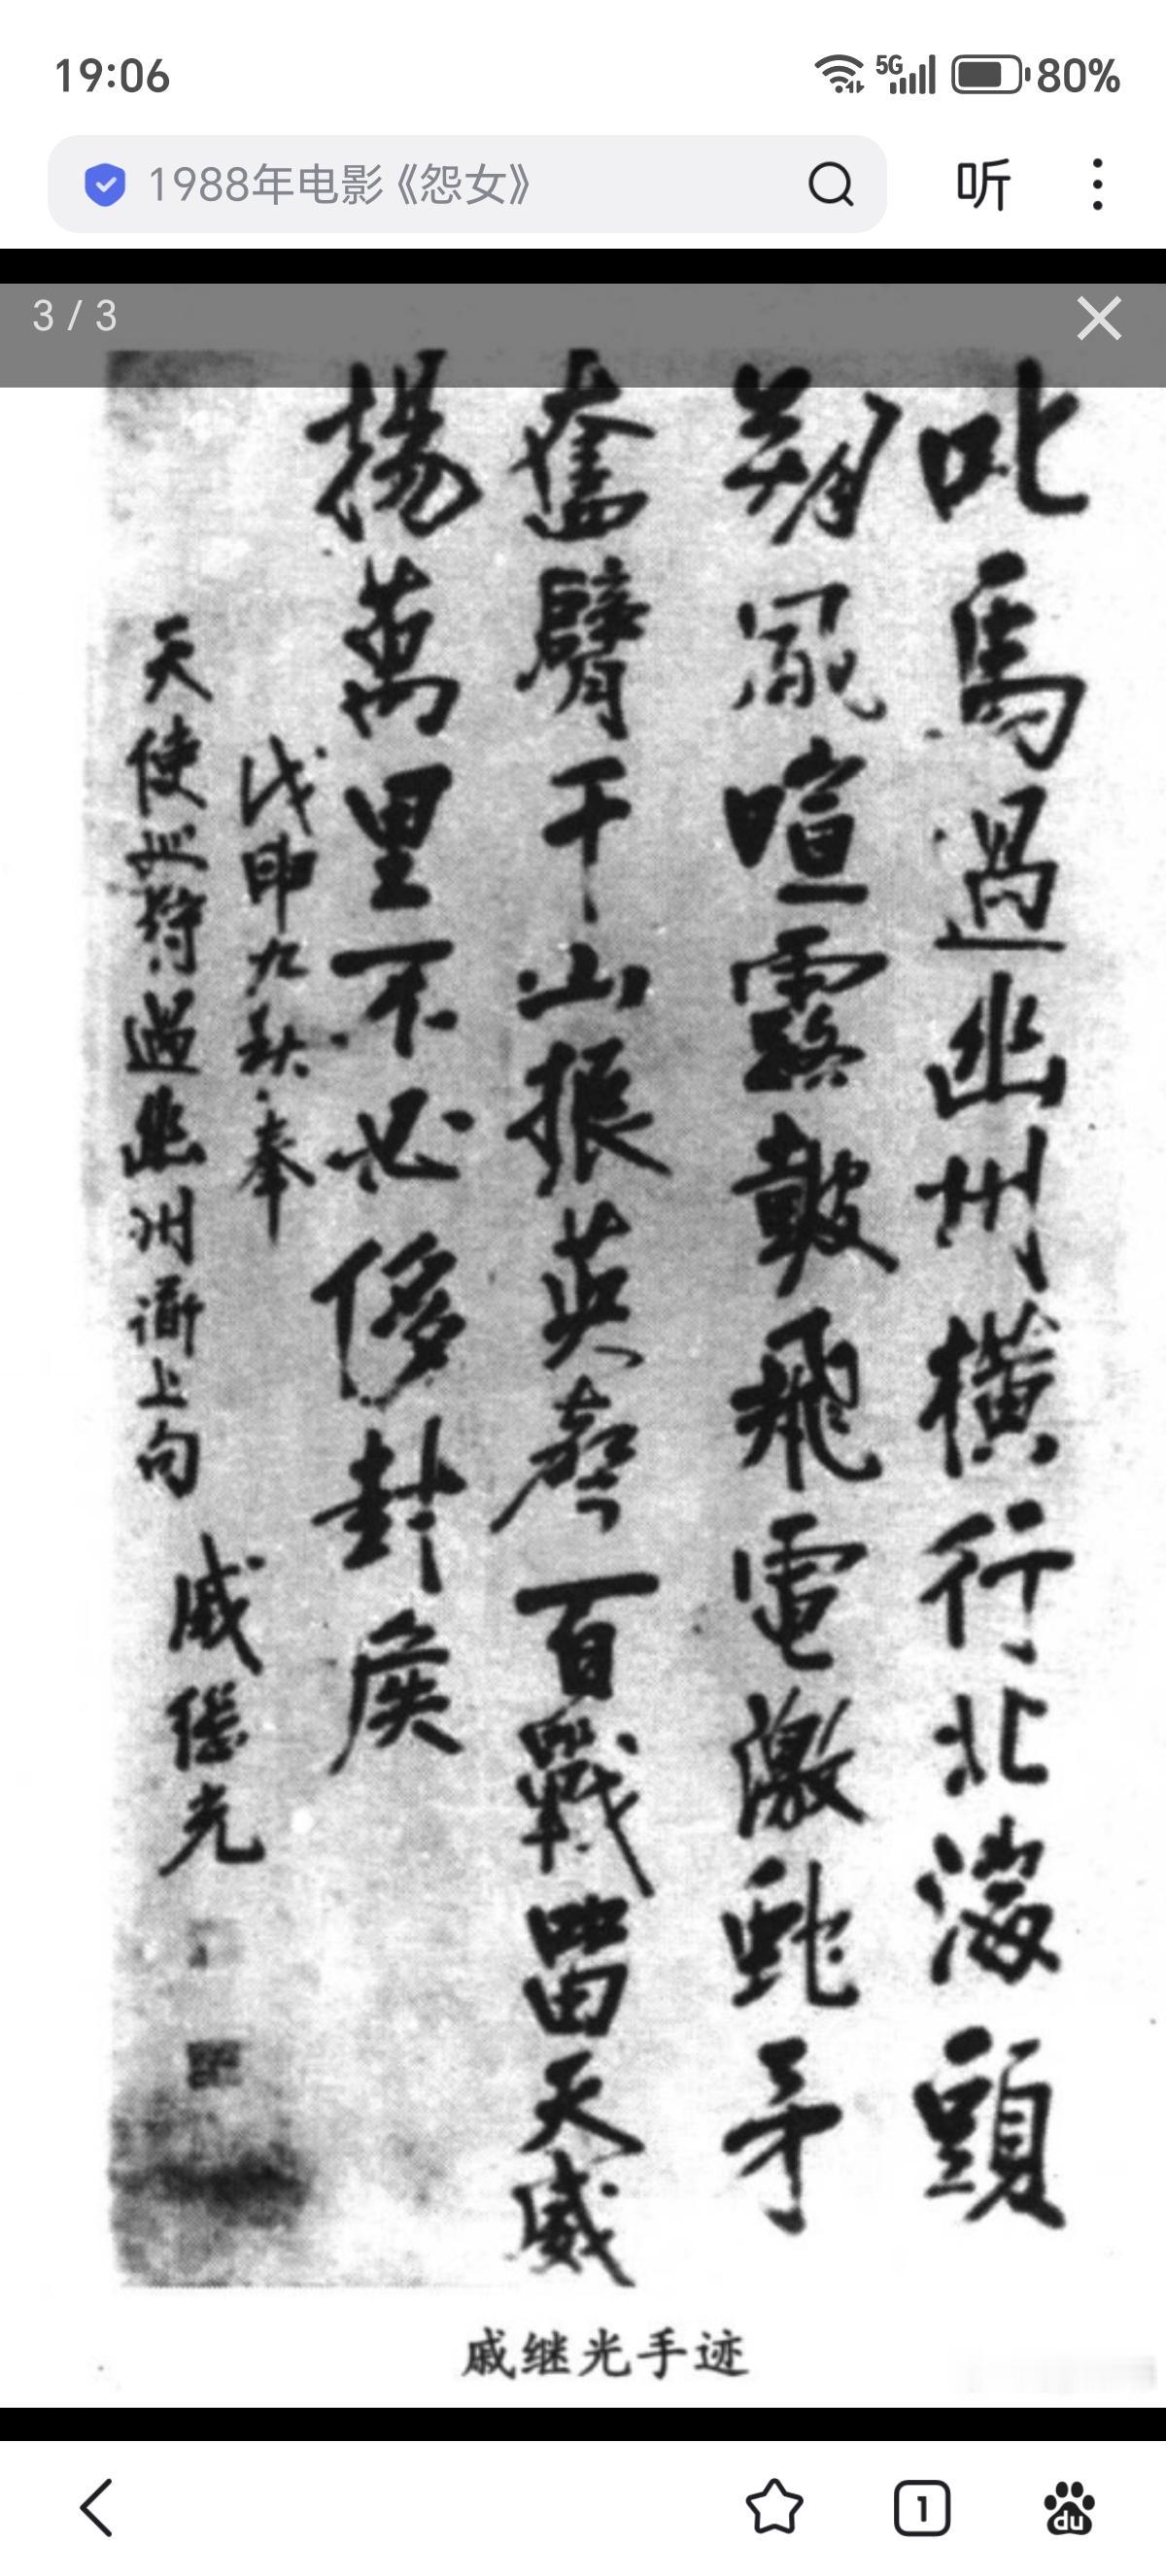 19:06
5G 80%
1988年电影《怨女》
听
3 / 3
叱馬過幽州橫行北海頭
朔風喧露鼓飛電激蛇矛
奮臂千山振英聲百戰留天威
揚萬里不必侈封侯
戊申九秋奉
天使巡狩過幽州漸上句
戚繼光
戚继光手迹
1
du